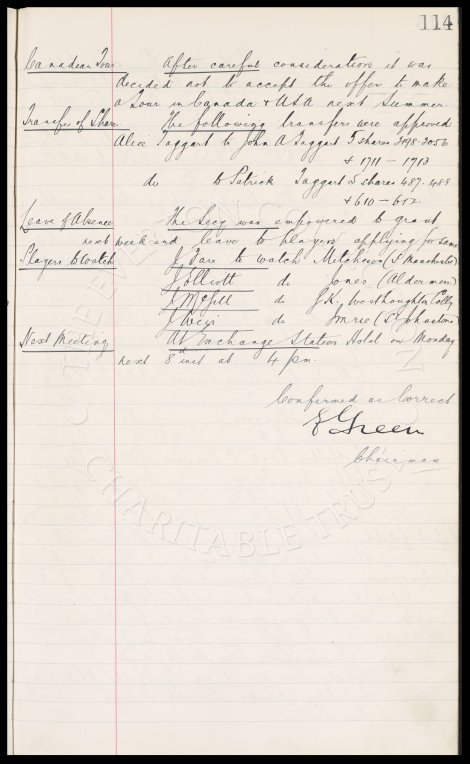 114
Canadian Tour After careful consideration it was
decided not to accept the offer to make
a Tour in Canada & USA next Summer.
Transfer of Share The following transfers were approved
Alice Taggart to John A Taggart 5 shares 3098-3056
& 1711 - 1713
do to Patrick Taggart 5 shares 487-488
& 610 - 612
Leave of Absence The Secy was empowered to grant
next week end leave to players applying for same
Players to watch J Fare to watch (St Manchester)
J Elliott do Jones (Aldermere)
J McGill do J.K. Westhoughton Colly
J Weir do Imrie (St Johnstone)
Next Meeting At Exchange Station Hotel on Monday
next 8th inst at 4 pm.
Confirmed as Correct
Green
Chairman
THE EVERTON
CHARITABLE TRUST